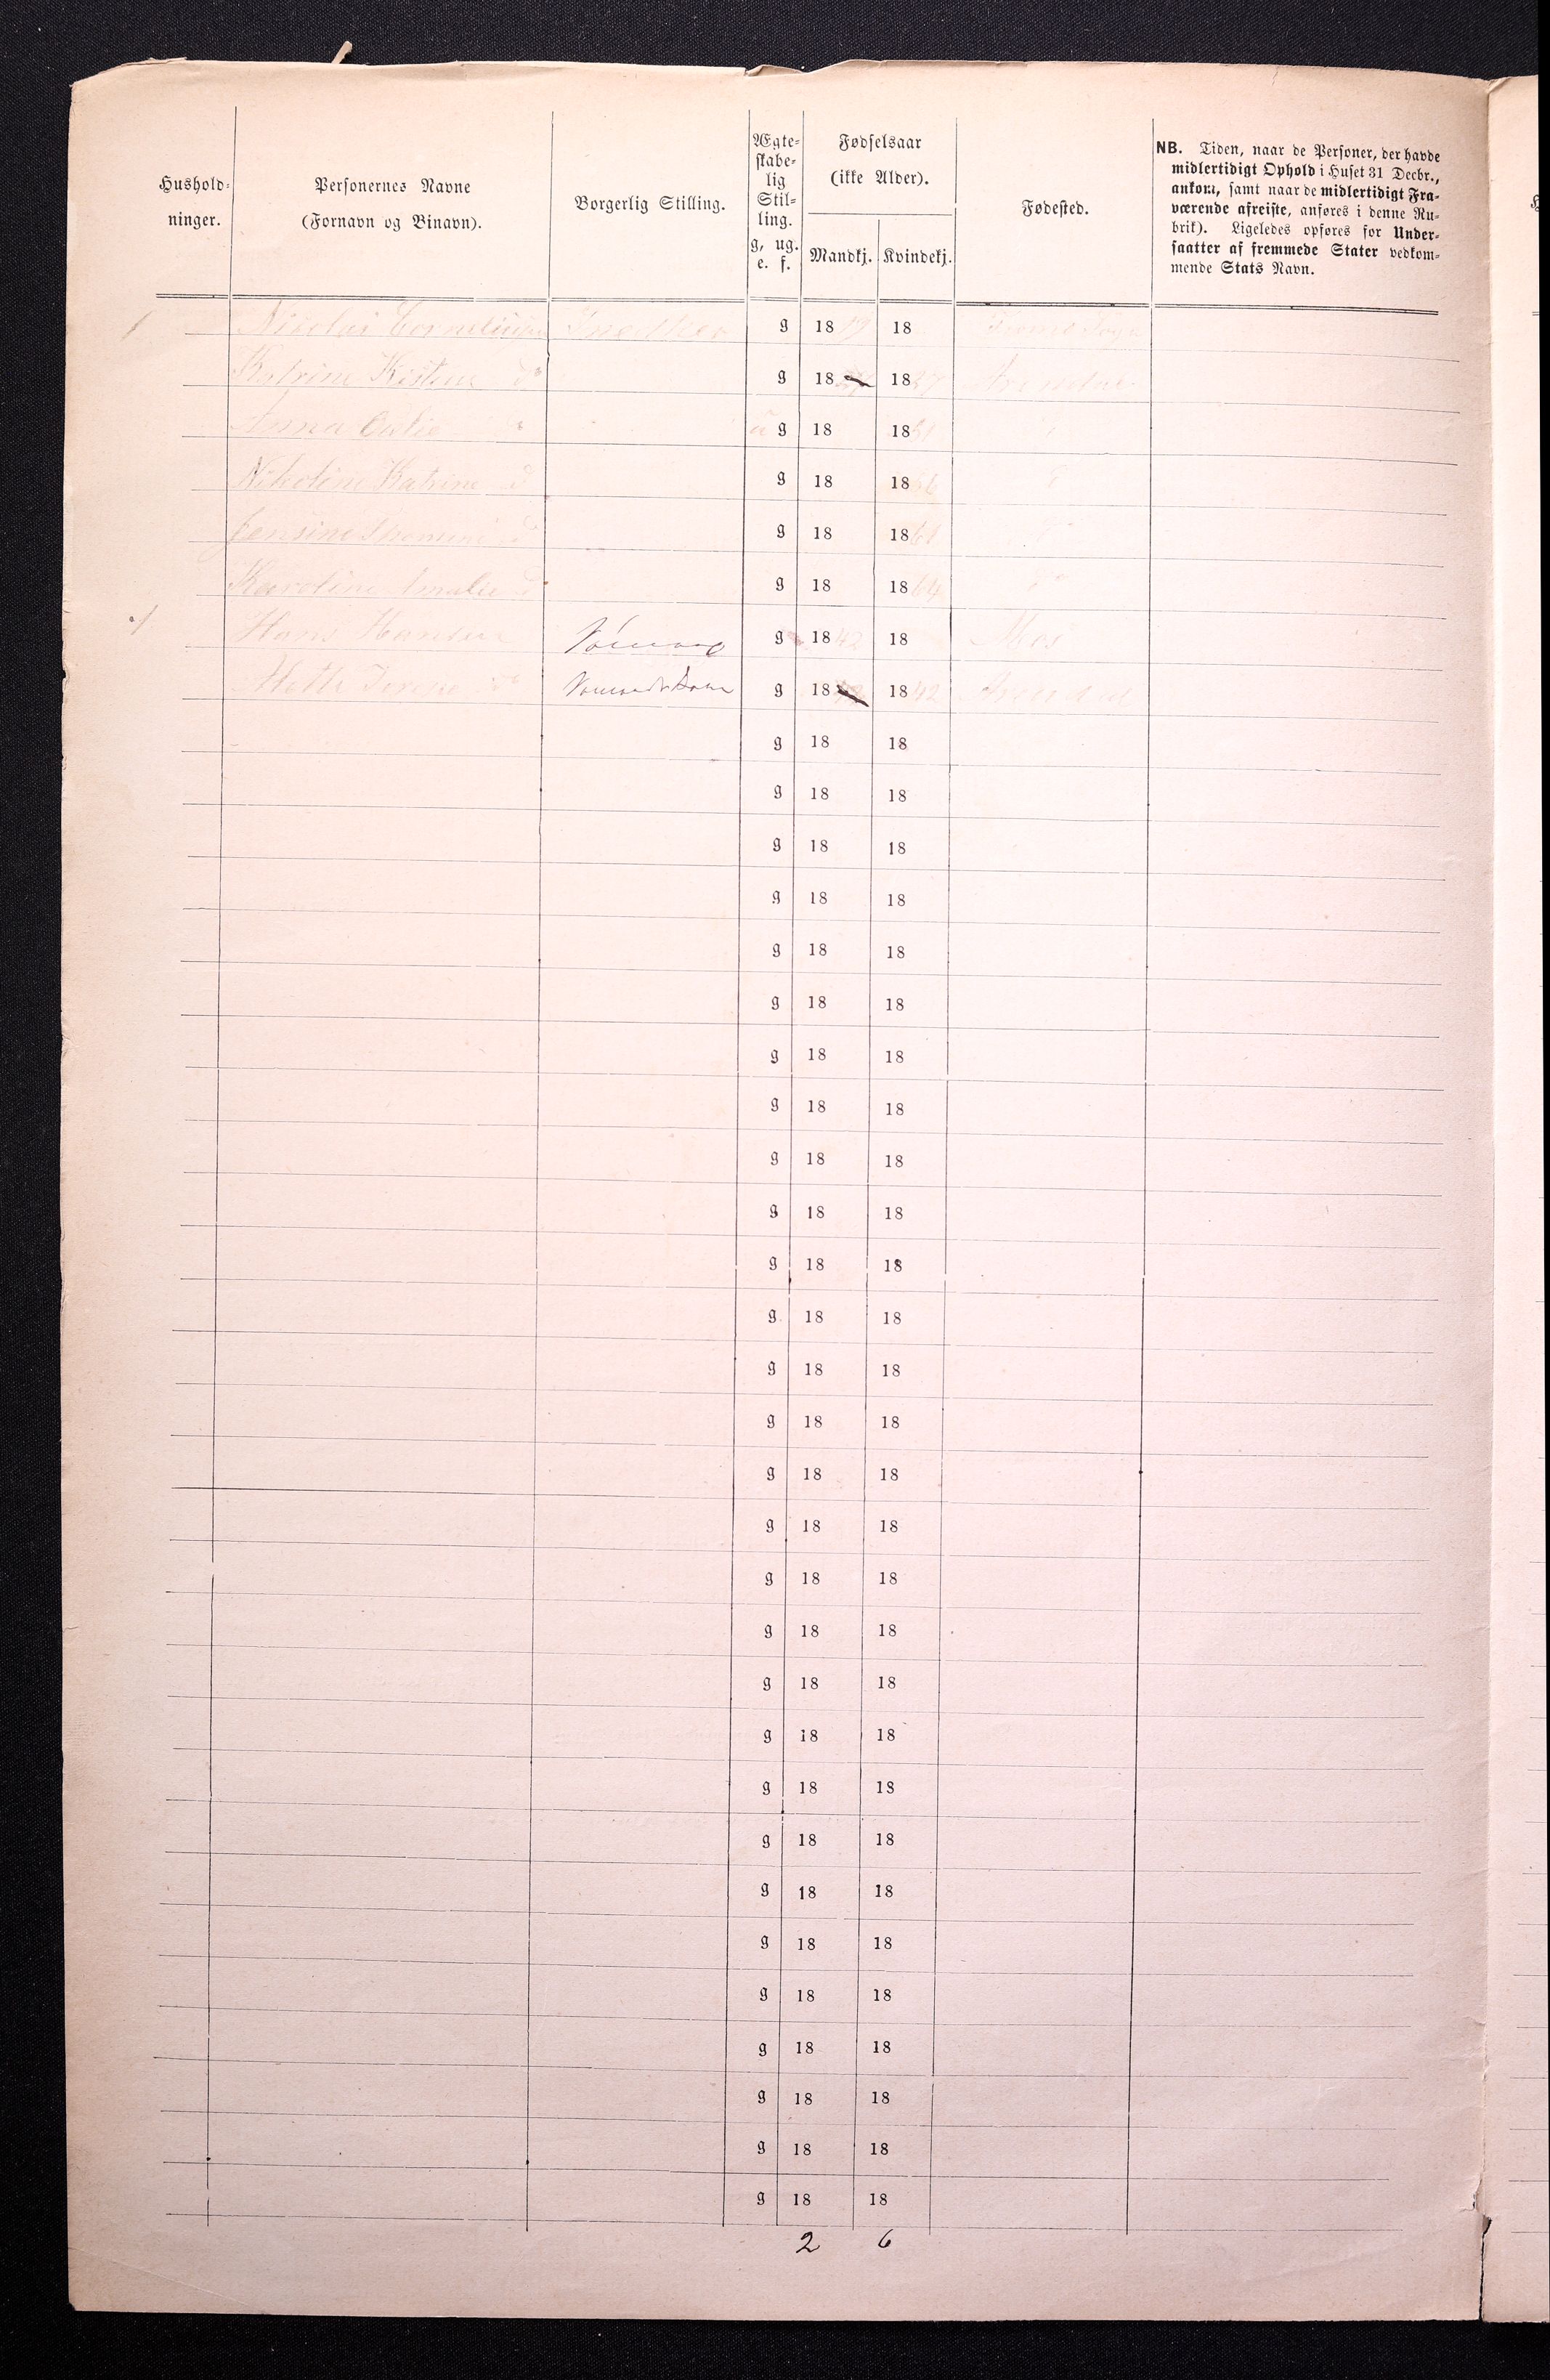 Hushold-
ninger.
Personernes Navne
(Fornavn og Binavn).
Borgerlig Stilling.
Ægte-
skabe-
lig
Stil-
ling.
g, ug.
e. f.
Fødselsaar
(ikke Alder).
Mandkj.
Kvindekj.
Fødested.
NB. Tiden, naar de Personer, der havde
midlertidigt Ophold i Huset 31 Decbr.,
ankom, samt naar de midlertidigt Fra-
værende afreiste, anføres i denne Ru-
brik). Ligeledes opføres for Under-
saatter af fremmede Stater vedkom-
mende Stats Navn.
Nicolai Snedker g 18 18
Katrine Kistine do g 18 1837 Arendal
Anna g 18 18
Nikoline Katrine d g 18 18
Jensine d g 18 1861
Karoline Amalie d g 18 1864
Hans Hansen Sømand g 1842 18 Mos
Sømands Kone g 18 1842 Arendal
g 18 18
g 18 18
g 18 18
g 18 18
g 18 18
g 18 18
g 18 18
g 18 18
g 18 18
g 18 18
g 18 18
g 18 18
g 18 18
g 18 18
g 18 18
g 18 18
g 18 18
g 18 18
g 18 18
g 18 18
g 18 18
g 18 18
g 18 18
g 18 18
g 18 18
g 18 18
g 18 18
g 18 18
g 18 18
2 6